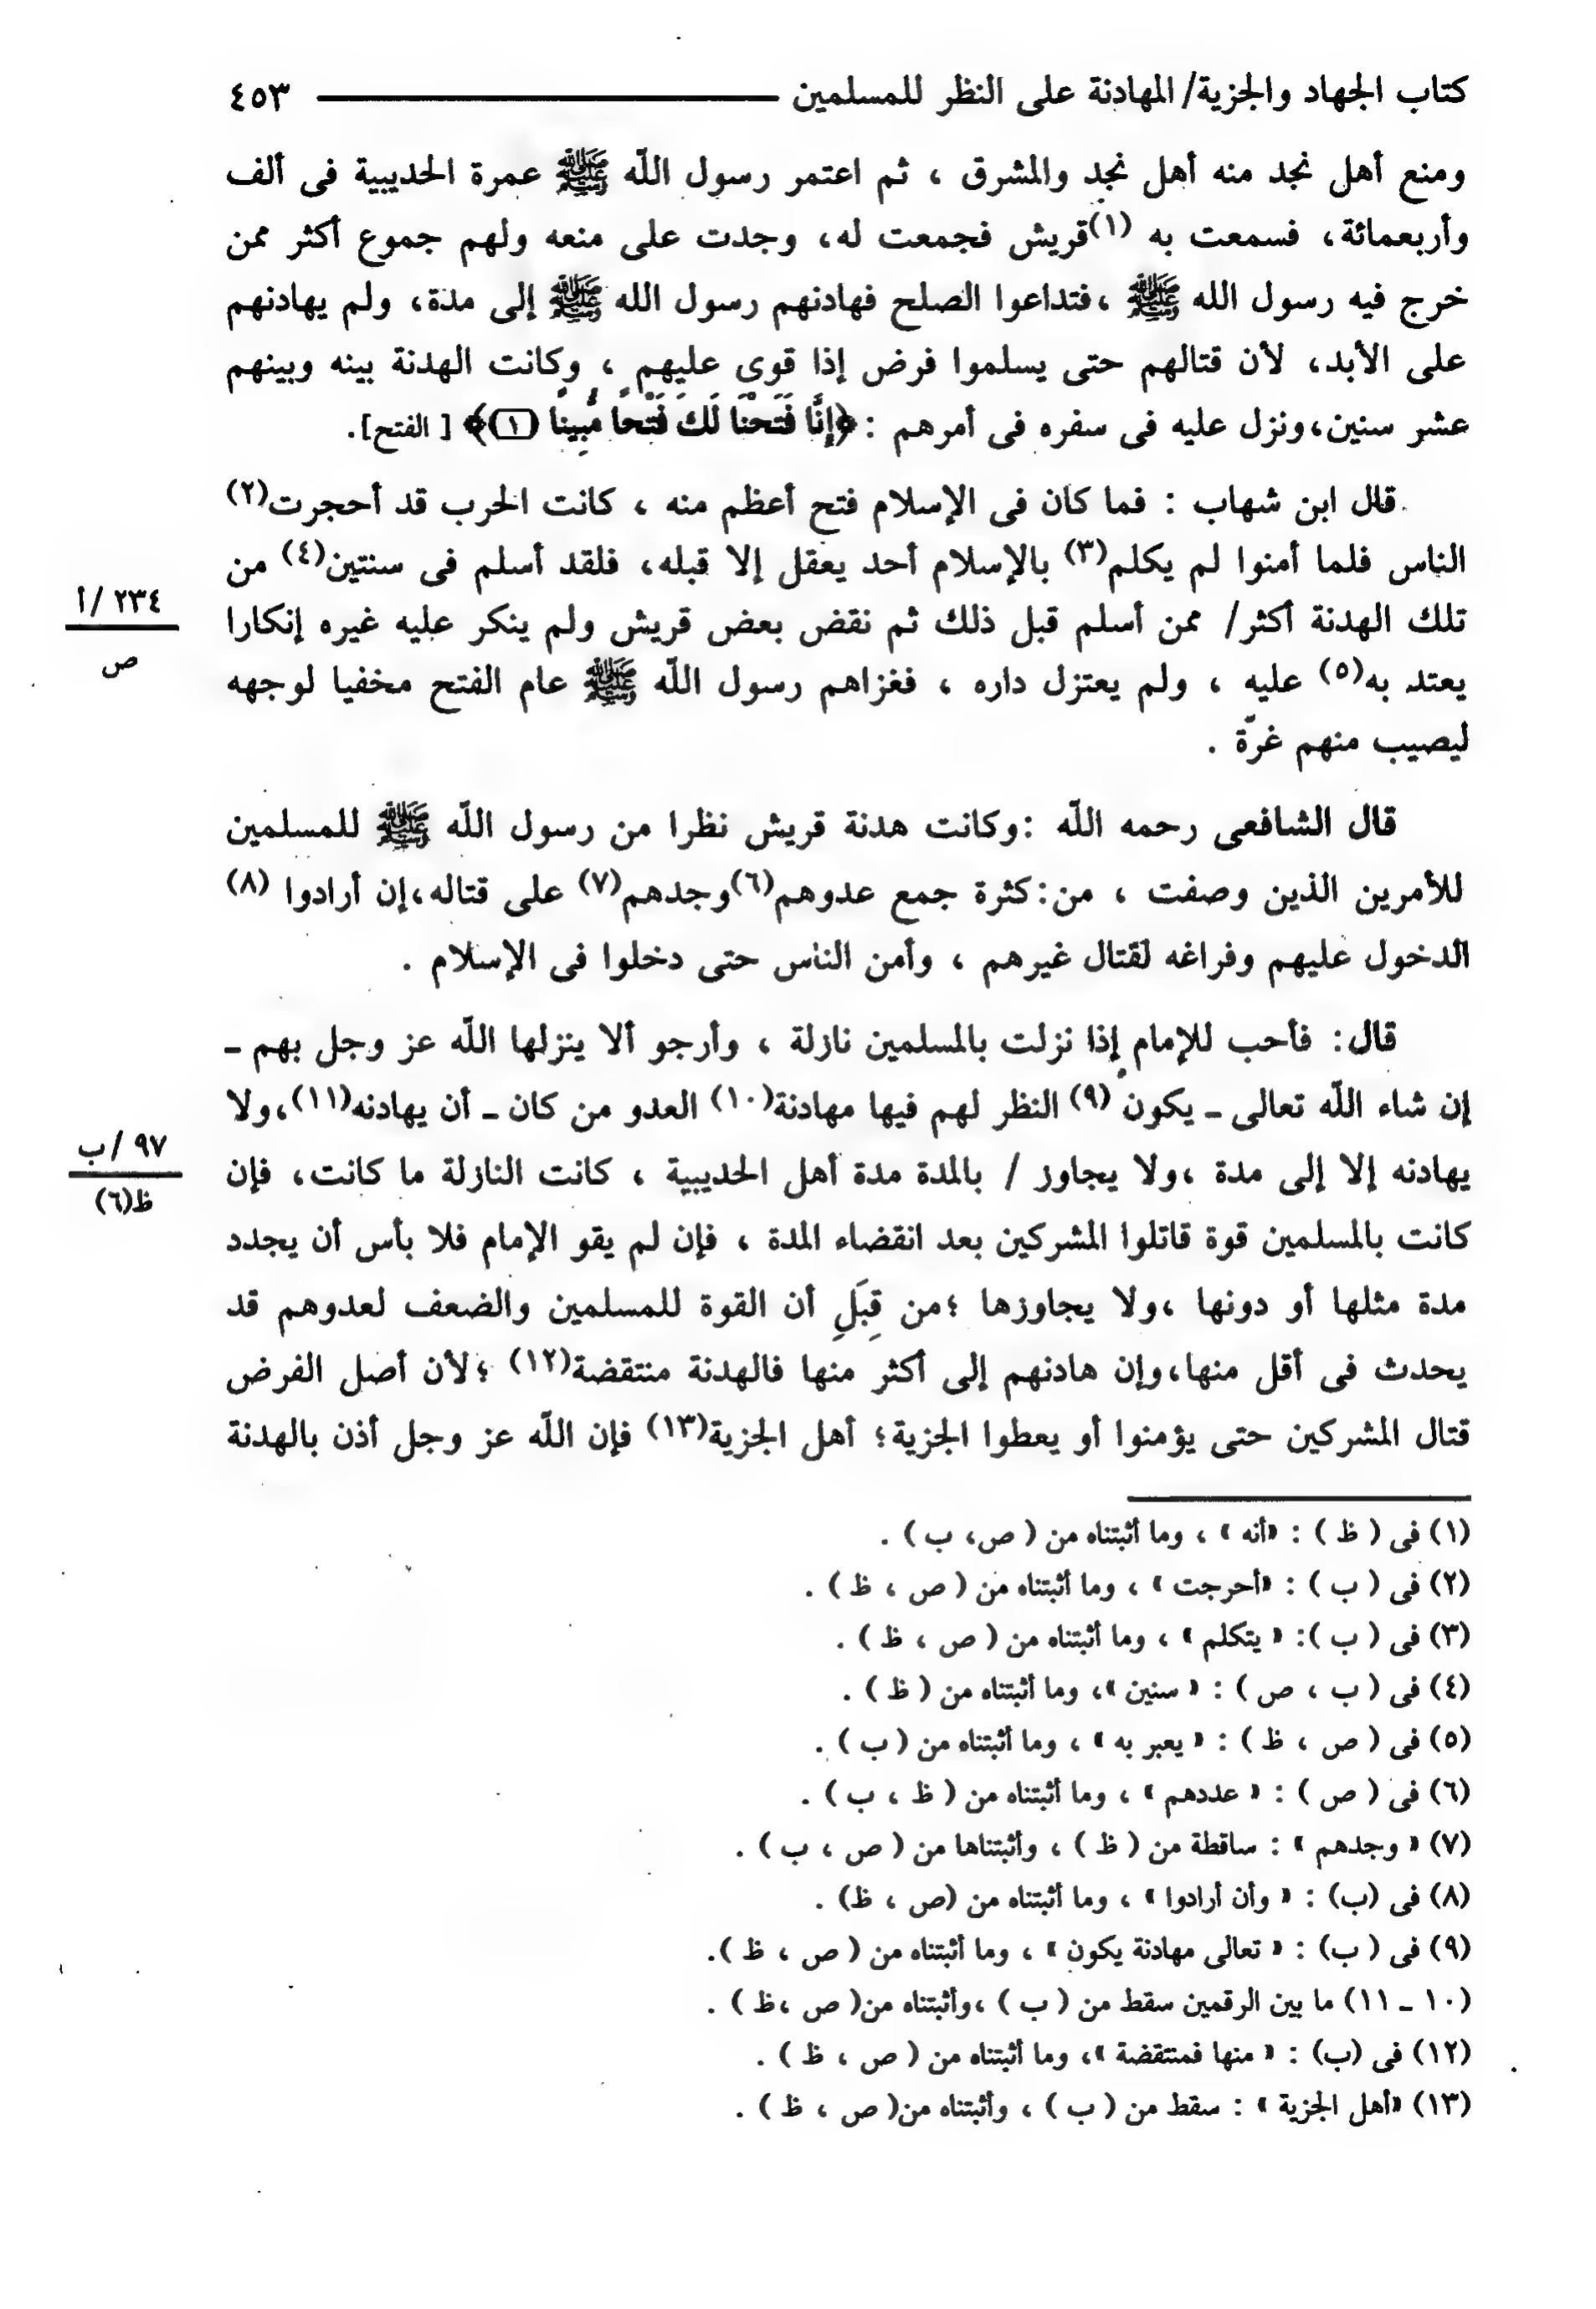 كتاب الجهاد والجزية/ المهادنة على النظر للمسلمين ٤٥٣
ومنع أهل نجد منه أهل نجد والمشرق ، ثم اعتمر رسول اللّه ﷺ عمرة الحديبية فى ألف
وأربعمائة، فسمعت به (١)قريش فجمعت له، وجدت على منعه ولهم جموع أكثر ممن
خرج فيه رسول الله ﷺ ،فتداعوا الصلح فهادنهم رسول الله ﷺ إلى مدة، ولم يهادنهم
على الأبد، لأن قتالهم حتى يسلموا فرض إذا قوى عليهم ، وكانت الهدنة بينه وبينهم
عشر سنين،ونزل عليه فى سفره فى أمرهم : ﴿إِنَّا فَتَحْنَا لَكَ فَتْحًا مُّبِينًا (١)﴾ [ الفتح].
قال ابن شهاب : فما كان فى الإسلام فتح أعظم منه ، كانت الحرب قد أحجرت(٢)
الناس فلما أمنوا لم يكلم(٣) بالإسلام أحد يعقل إلا قبله، فلقد أسلم فى سنتين(٤) من
تلك الهدنة أكثر/ ممن أسلم قبل ذلك ثم نقض بعض قريش ولم ينكر عليه غيره إنكارا
٢٣٤ /أ
ص
يعتد به(٥) عليه ، ولم يعتزل داره ، فغزاهم رسول اللّه ﷺ عام الفتح مخفيا لوجهه
ليصيب منهم غرّة .
قال الشافعى رحمه اللّه :وكانت هدنة قريش نظرا من رسول اللّه ﷺ للمسلمين
للأمرين الذين وصفت ، من:كثرة جمع عدوهم(٦)وجدهم(٧) على قتاله،إن أرادوا (٨)
الدخول عليهم وفراغه لقتال غيرهم ، وأمن الناس حتى دخلوا فى الإسلام .
قال: فأحب للإمام إذا نزلت بالمسلمين نازلة ، وأرجو ألا ينزلها اللّه عز وجل بهم ـ
إن شاء اللّه تعالى ـ يكون (٩) النظر لهم فيها مهادنة(١٠) العدو من كان ـ أن يهادنه(١١)،ولا
يهادنه إلا إلى مدة ،ولا يجاوز / بالمدة مدة أهل الحديبية ، كانت النازلة ما كانت، فإن
٩٧ /ب
ظ(٦)
كانت بالمسلمين قوة قاتلوا المشركين بعد انقضاء المدة ، فإن لم يقو الإمام فلا بأس أن يجدد
مدة مثلها أو دونها ،ولا يجاوزها ؛من قِبَلِ أن القوة للمسلمين والضعف لعدوهم قد
يحدث فى أقل منها،وإن هادنهم إلى أكثر منها فالهدنة منتقضة(١٢) ؛لأن أصل الفرض
قتال المشركين حتى يؤمنوا أو يعطوا الجزية؛ أهل الجزية(١٣) فإن اللّه عز وجل أذن بالهدنة
(١) فى ( ظ ) : «أنه » ، وما أثبتناه من ( ص، ب ) .
(٢) فى ( ب ) : «أحرجت » ، وما أثبتناه من ( ص ، ظ ) .
(٣) فى ( ب ): « يتكلم » ، وما أثبتناه من ( ص ، ظ ) .
(٤) فى ( ب ، ص ) : « سنين »، وما أثبتناه من ( ظ ) .
(٥) فى ( ص ، ظ ) : « يعبر به » ، وما أثبتناه من ( ب ) .
(٦) فى ( ص ) : « عددهم » ، وما أثبتناه من ( ظ ، ب ) .
(٧) « وجدهم » : ساقطة من ( ظ ) ، وأثبتناها من ( ص ، ب ) .
(٨) فى (ب) : « وأن أرادوا » ، وما أثبتناه من (ص ، ظ) .
(٩) فى ( ب) : « تعالى مهادنة يكون » ، وما أثبتناه من ( ص ، ظ ).
(١٠ ـ ١١) ما بين الرقمين سقط من ( ب ) ،وأثبتناه من( ص ،ظ ) .
(١٢) فى (ب) : « منها فمنتقضة »، وما أثبتناه من ( ص ، ظ ) .
(١٣) «أهل الجزية » : سقط من ( ب ) ، وأثبتناه من( ص ، ظ ) .